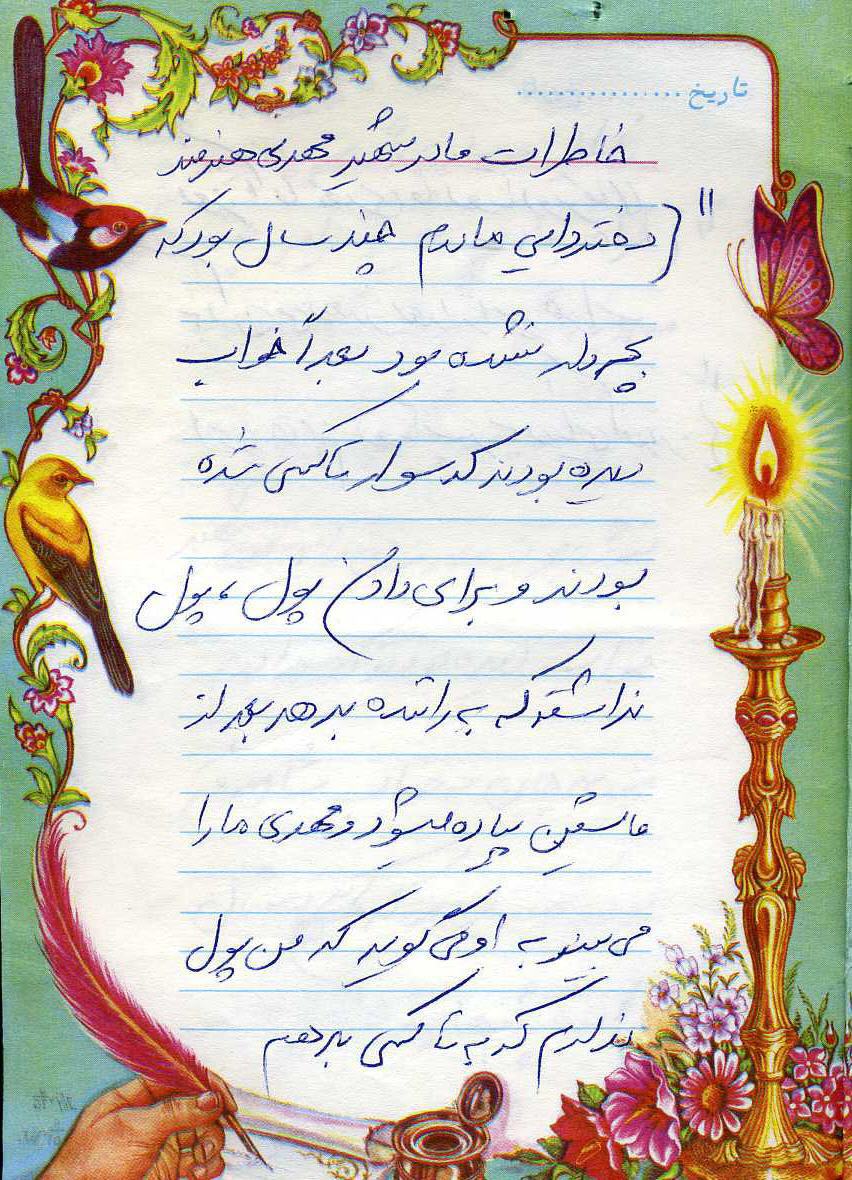 تاریخ ................
خاطرات مادر شهید مهدی هنرمند
" (دختر دایی مادرم چند سال بود که
بچه دار نشده بود بعداً خواب
دیده بودند که سوار تاکسی شده
بودند و برای دادن پول ، پول
نداشته که به راننده بدهد بعد از
ماشین پیاده میشود و مهدی ما را
می بیند به او می گوید که من پول
ندارم که به تاکسی بدهم